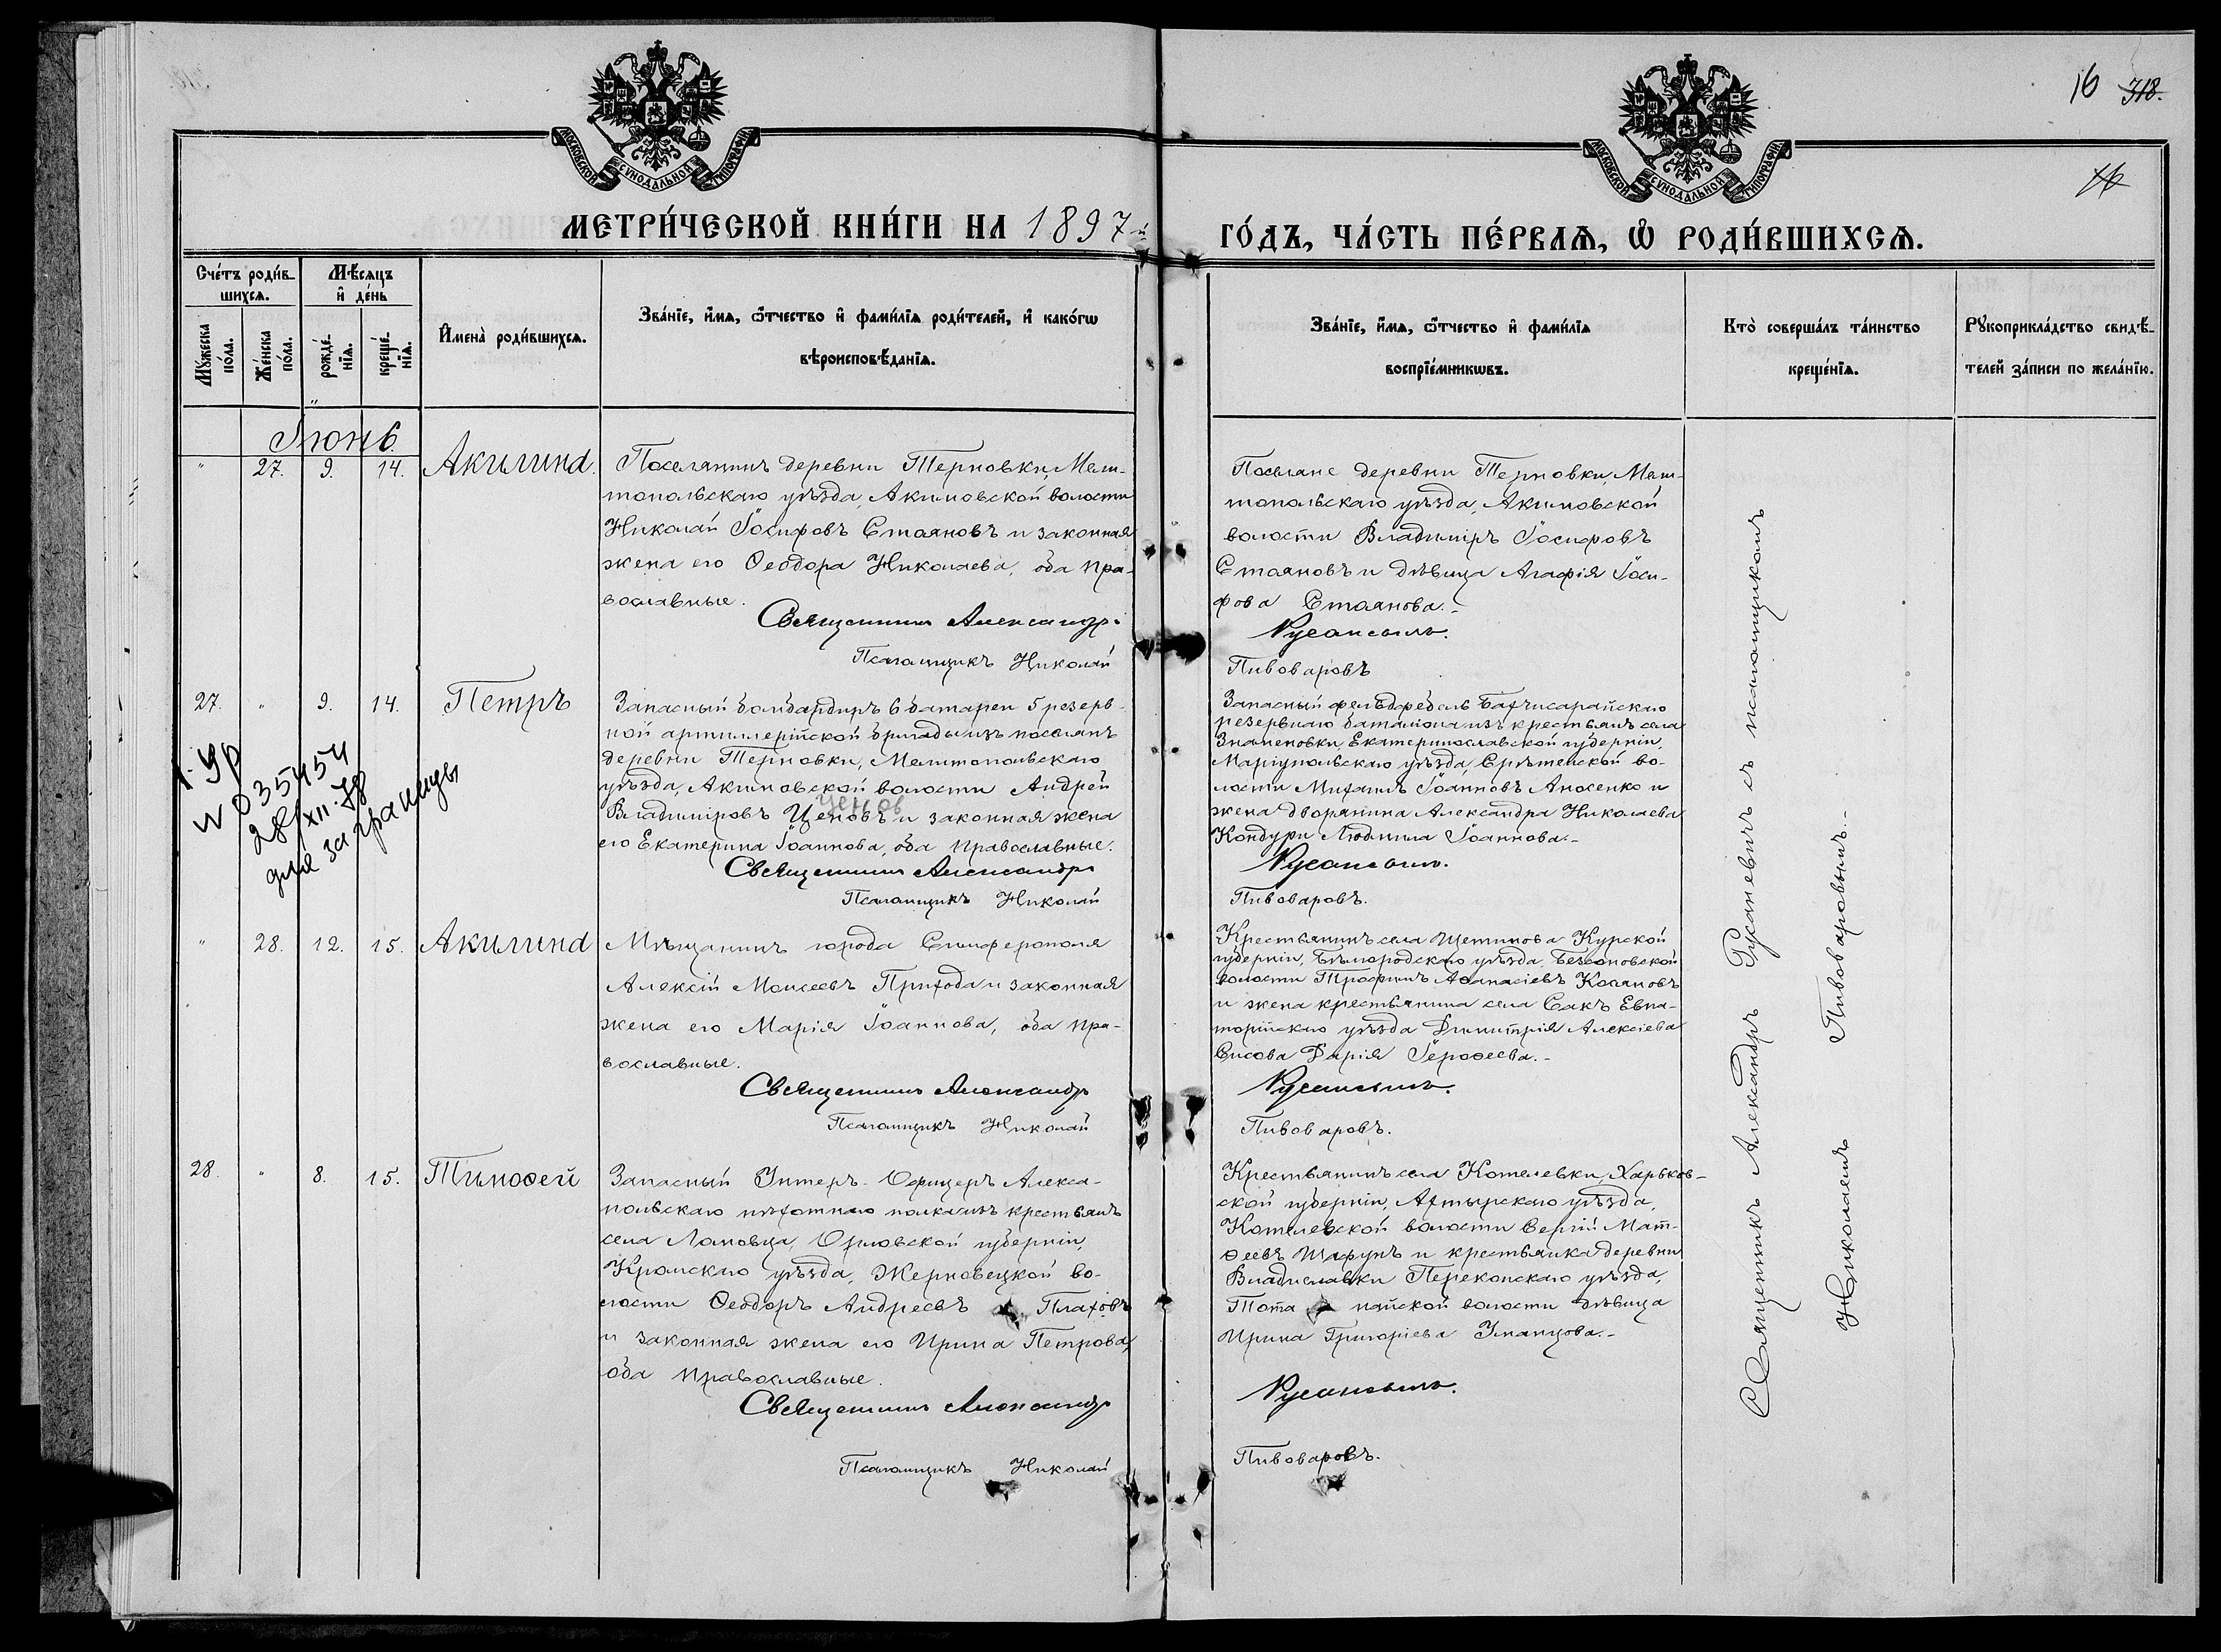 16 318.
16
МОСКОВСКОЙ СѴНОДАЛЬНОЙ ТИПОГРАФІИ
МОСКОВСКОЙ СѴНОДАЛЬНОЙ ТИПОГРАФІИ
МЕТРИ́ЧЕСКОЙ КНИ́ГИ НА 1897й
ГО́ДЪ, ЧА́СТЬ ПЕ́РВАѦ, Ѡ҆ РОДИ́ВШИХСѦ.
Сче́тъ роди́в-
шихсѧ.
Мѣ́сѧцъ
и҆ де́нь
Мꙋ́жеска
по́ла.
Же́нска
по́ла.
рожде́-
нїѧ.
креще́-
нїѧ.
И҆мена̀ роди́вшихсѧ.
Зва́нїе, и҆́мѧ, ѻ҆́тчество и҆ фами́лїѧ роди́телей, и҆ како́гѡ
вѣроисповѣ́данїѧ.
Зва́нїе, и҆́мѧ, ѻ҆́тчество и҆ фами́лїѧ
воспрїе́мникѡвъ.
Кто̀ соверша́лъ та́инство
креще́нїѧ.
Рꙋкоприкла́дство свидѣ́-
телей за́писи по жела́нїю.
Іюнь.
" 27. 9. 14. Акилина.
Поселянинъ деревни Терновки, Мели-
топольскаго уѣзда, Акимовской волости
Николай Іосифовъ Стояновъ и законная
жена его Ѳеодора Николаева, оба пра-
вославные.
Священникъ Александръ
Псаломщикъ Николай
Поселяне деревни Терновки, Мели-
топольскаго уѣзда, Акимовской
волости Владиміръ Іосифовъ
Стояновъ и дѣвица Агафія Іоси-
фова Стоянова.-
Русаневичъ.
Пивоваровъ
27. " 9. 14. Петръ
Запасный бомбардиръ 6 батареи 5 резерв-
ной артиллерійской бригады изъ поселянъ
деревни Терновки, Мелитопольскаго
уѣзда, Акимовской волости Андрей
Ценов
Владиміровъ Ценовъ и законная жена
его Екатерина Іоаннова, оба православные.
Священникъ Александръ
Псаломщикъ Николай
Запасный фельдфебель Бахчисарайскаго
резервнаго баталіона изъ крестьянъ села
Знаменовки, Екатеринославской губерніи,
Маріупольскаго уѣзда, Срѣтенской во-
лости Михаилъ Іоанновъ Аносенко и
жена дворянина Александра Николаева
Кондури Людмила Іоаннова.-
Русаневичъ.
Пивоваровъ.
035454
28/XII.78
для заграницы
" 28. 12. 15. Акилина
Мѣщанинъ города Симферополя
Алексій Моисеевъ Приходя и законная
жена его Марія Іоаннова, оба пра-
вославные.
Священникъ Александръ
Псаломщикъ Николай
Крестьянинъ села Щетинова Курской
губерніи, Бѣлгородскаго уѣзда, Безсоновской
волости Трофимъ Аѳанасіевъ Косановъ
и жена крестьянина села Сакъ Евпа-
торійскаго уѣзда Димитрія Алексіева
Сисова Дарія Іероѳеева.-
Русаневичъ.
Пивоваровъ.
28. " 8. 15. Тимоѳей
Запасный Унтеръ-Офицеръ Алекса-
польскаго пѣхотнаго полка изъ крестьянъ
села Ломовца, Орловской губерніи,
Кромскаго уѣзда, Жерновецкой во-
лости Ѳеодоръ Андреевъ Плаховъ
и законная жена его Ирина Петрова,
оба православные.
Священникъ Александръ
Псаломщикъ Николай
Крестьянинъ села Котелевки, Харьков-
ской губерніи, Ахтырскаго уѣзда,
Котелевской волости Сергій Мат-
ѳеевъ Шафунъ и крестьянка деревни
Владиславки Перекопскаго уѣзда,
Тота найской волости дѣвица
Ирина Григоріева Уманцова.-
Русаневичъ.
Пивоваровъ.
Священникъ Александръ Русаневичъ съ псаломщикомъ
Николаемъ Пивоваровымъ.-